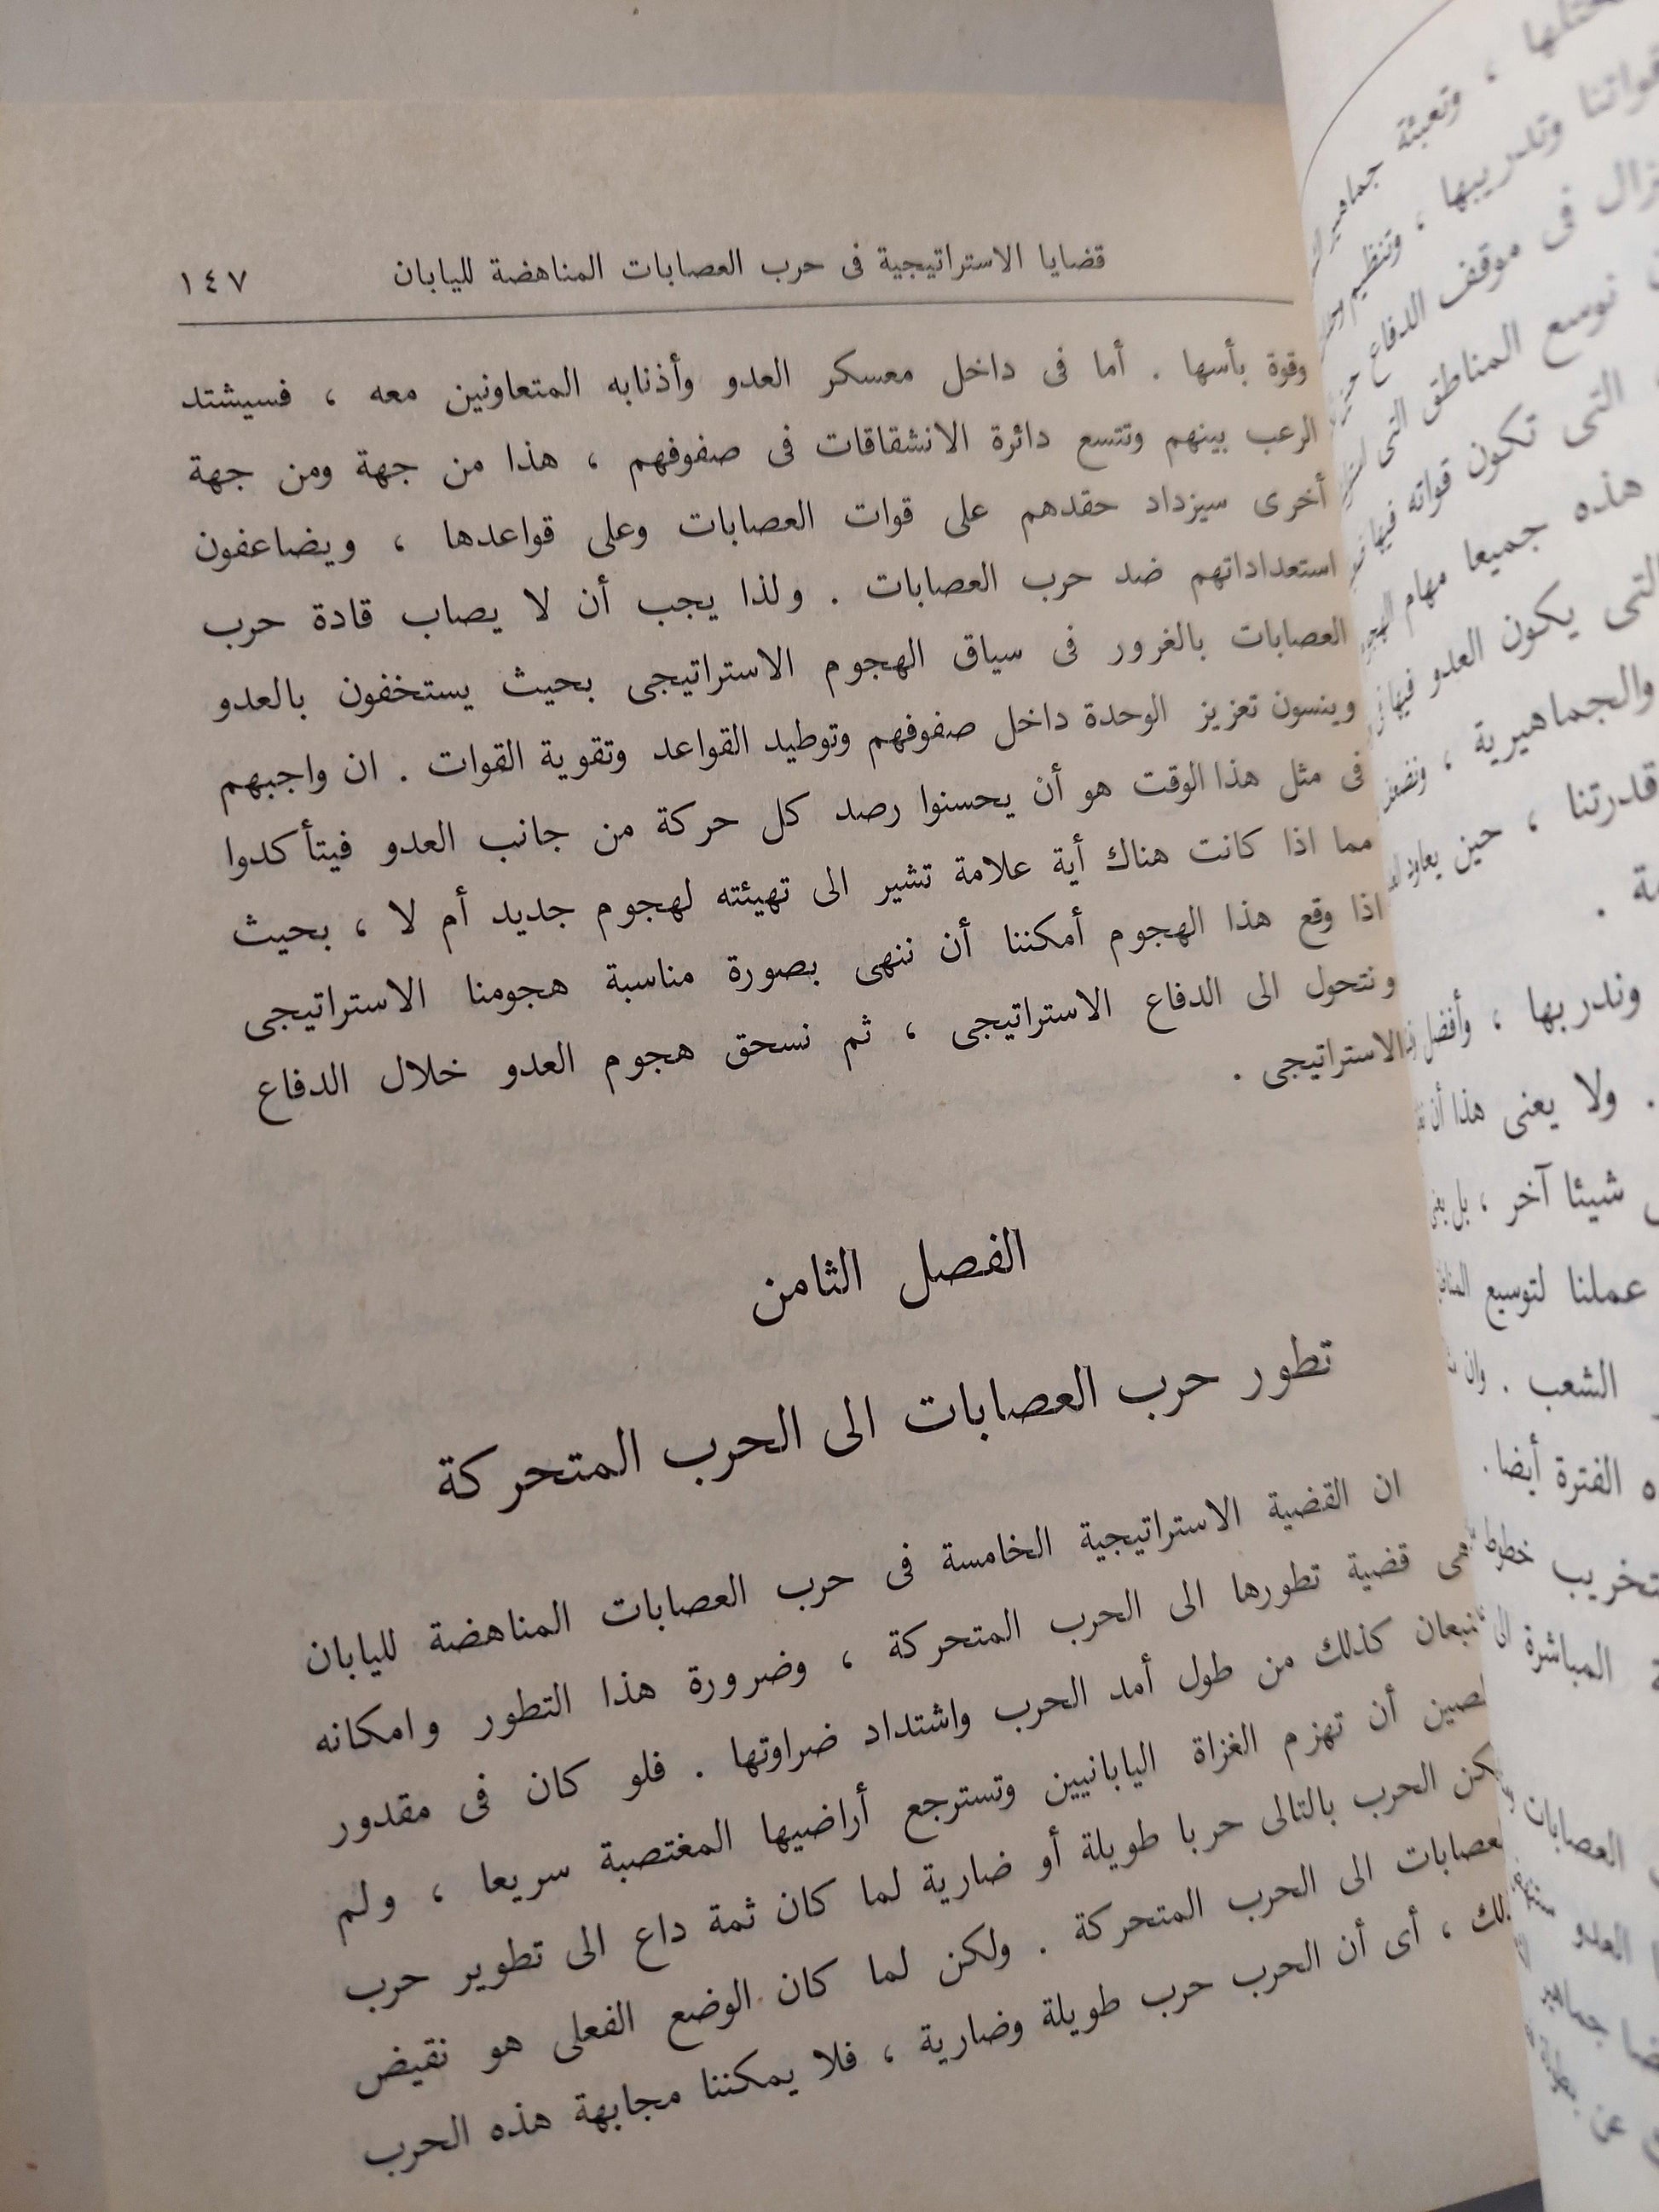 قضايا الاستراتيجية فى حرب العصابات المناهضة لليابان ١٤٧
وقوة بأسها . أما فى داخل معسكر العدو وأذنابه المتعاونين معه ، فسيشتد
الرعب بينهم وتتسع دائرة الانشقاقات فى صفوفهم ، هذا من جهة ومن جهة
أخرى سيزداد حقدهم على قوات العصابات وعلى قواعدها ، ويضاعفون
استعداداتهم ضد حرب العصابات . ولذا يجب أن لا يصاب قادة حرب
العصابات بالغرور فى سياق الهجوم الاستراتيجى بحيث يستخفون بالعدو
وينسون تعزيز الوحدة داخل صفوفهم وتوطيد القواعد وتقوية القوات . ان واجبهم
فى مثل هذا الوقت هو أن يحسنوا رصد كل حركة من جانب العدو فيتأكدوا
مما اذا كانت هناك أية علامة تشير الى تهيئته لهجوم جديد أم لا ، بحيث
اذا وقع هذا الهجوم أمكننا أن ننهى بصورة مناسبة هجومنا الاستراتيجى
ونتحول الى الدفاع الاستراتيجى ، ثم نسحق هجوم العدو خلال الدفاع
الاستراتيجى .
الفصل الثامن
تطور حرب العصابات الى الحرب المتحركة
ان القضية الاستراتيجية الخامسة فى حرب العصابات المناهضة لليابان
هى قضية تطورها الى الحرب المتحركة ، وضرورة هذا التطور وامكانه
كذلك من طول أمد الحرب واشتداد ضراوتها . فلو كان فى مقدور
أن تهزم الغزاة اليابانيين وتسترجع أراضيها المغتصبة سريعا ، ولم
الحرب بالتالى حربا طويلة أو ضارية لما كان ثمة داع الى تطوير حرب
الى الحرب المتحركة . ولكن لما كان الوضع الفعلى هو نقيض
، أى أن الحرب حرب طويلة وضارية ، فلا يمكننا مجابهة هذه الحرب
، وتعبئة
وتدريبها ،
فى موقف الدفاع
نوسع المناطق التى
التى تكون قواته فيها
هذه جميعا مهام
التى يكون العدو فيها
والجماهيرية ،
قدرتنا ، حين يعاود
وندربها ، وأفضل
. ولا يعنى هذا أن
شيئا آخر ، بل
عملنا لتوسيع
الشعب . وان
الفترة أيضا .
خطوط
المباشرة الى
العصابات
العدو